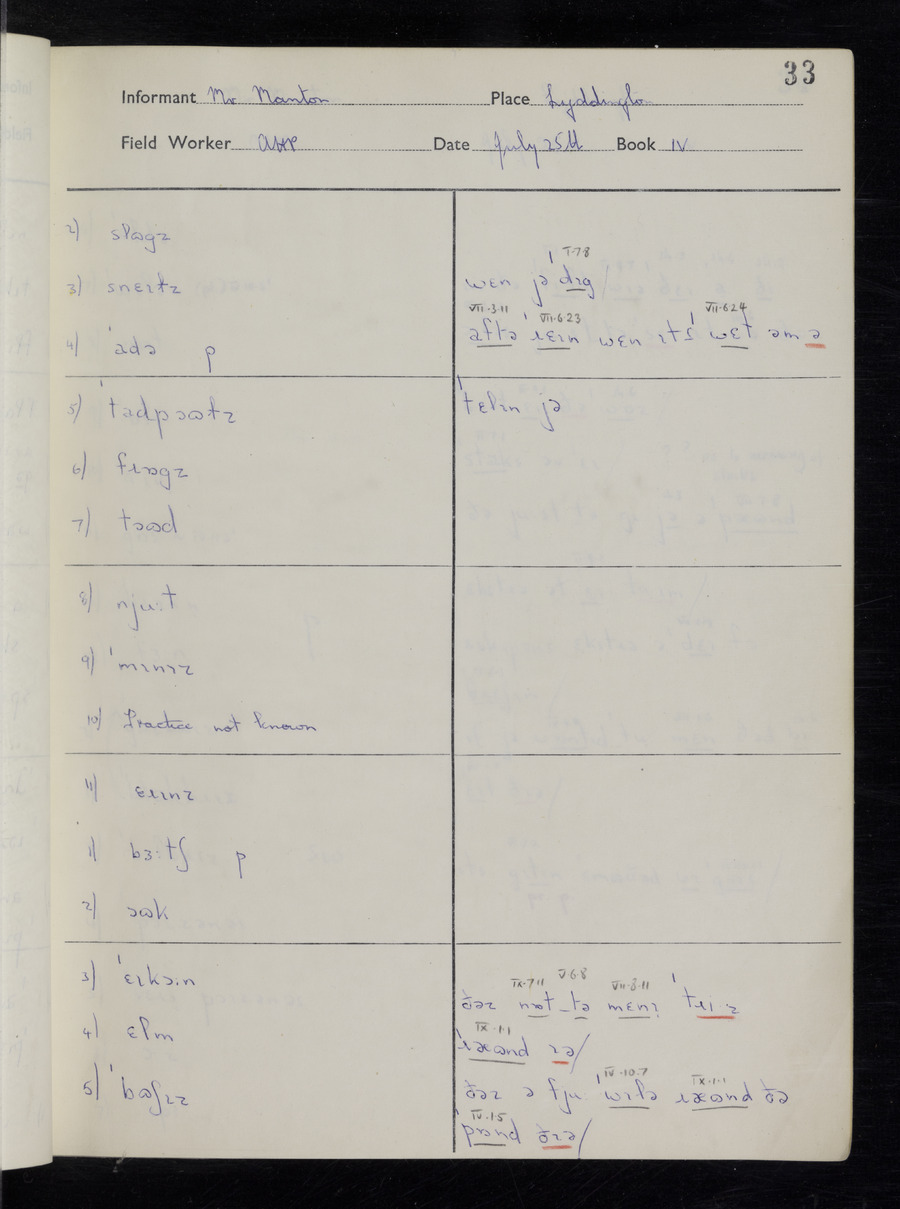 33
Informant Mr Manton Place Lyddington
Field Worker Date July 25th Book IV
2) slɒgz
3) snɛɪlz
4) ˈadə p
5) ˈtadpɔʊlz
6) fɹɒgz
7) tɔʊd
8) njuːt
9) ˈmɪnɪz
10) Practice not known
11) ɛɹɪnz
1) bɜːtʃ p
2) ɔʊk
3) ˈɛɪkɔːn
4) ɛlm
5) ˈbʊʃɪz
I.7.8
wɛn jə dɪg/
VII.3.11 VII.6.23 VII.6.24
aftə ˈɹɛɪn wɛn ɪts ˈwɛt əm ə
ˈtɛlɪn jə
IX.7.11 V.6.8 VII.8.11
ðəz nɒt tə mɛnɪ ˈtɹɪ z
IX.1.1
ˈɹæʊnd ɪə/
IV.10.7 IX.1.1
ðəz ə fjuː ˈwɪlə ɹæʊnd ðə
IV.1.5
ˈpɒnd ðɪə/